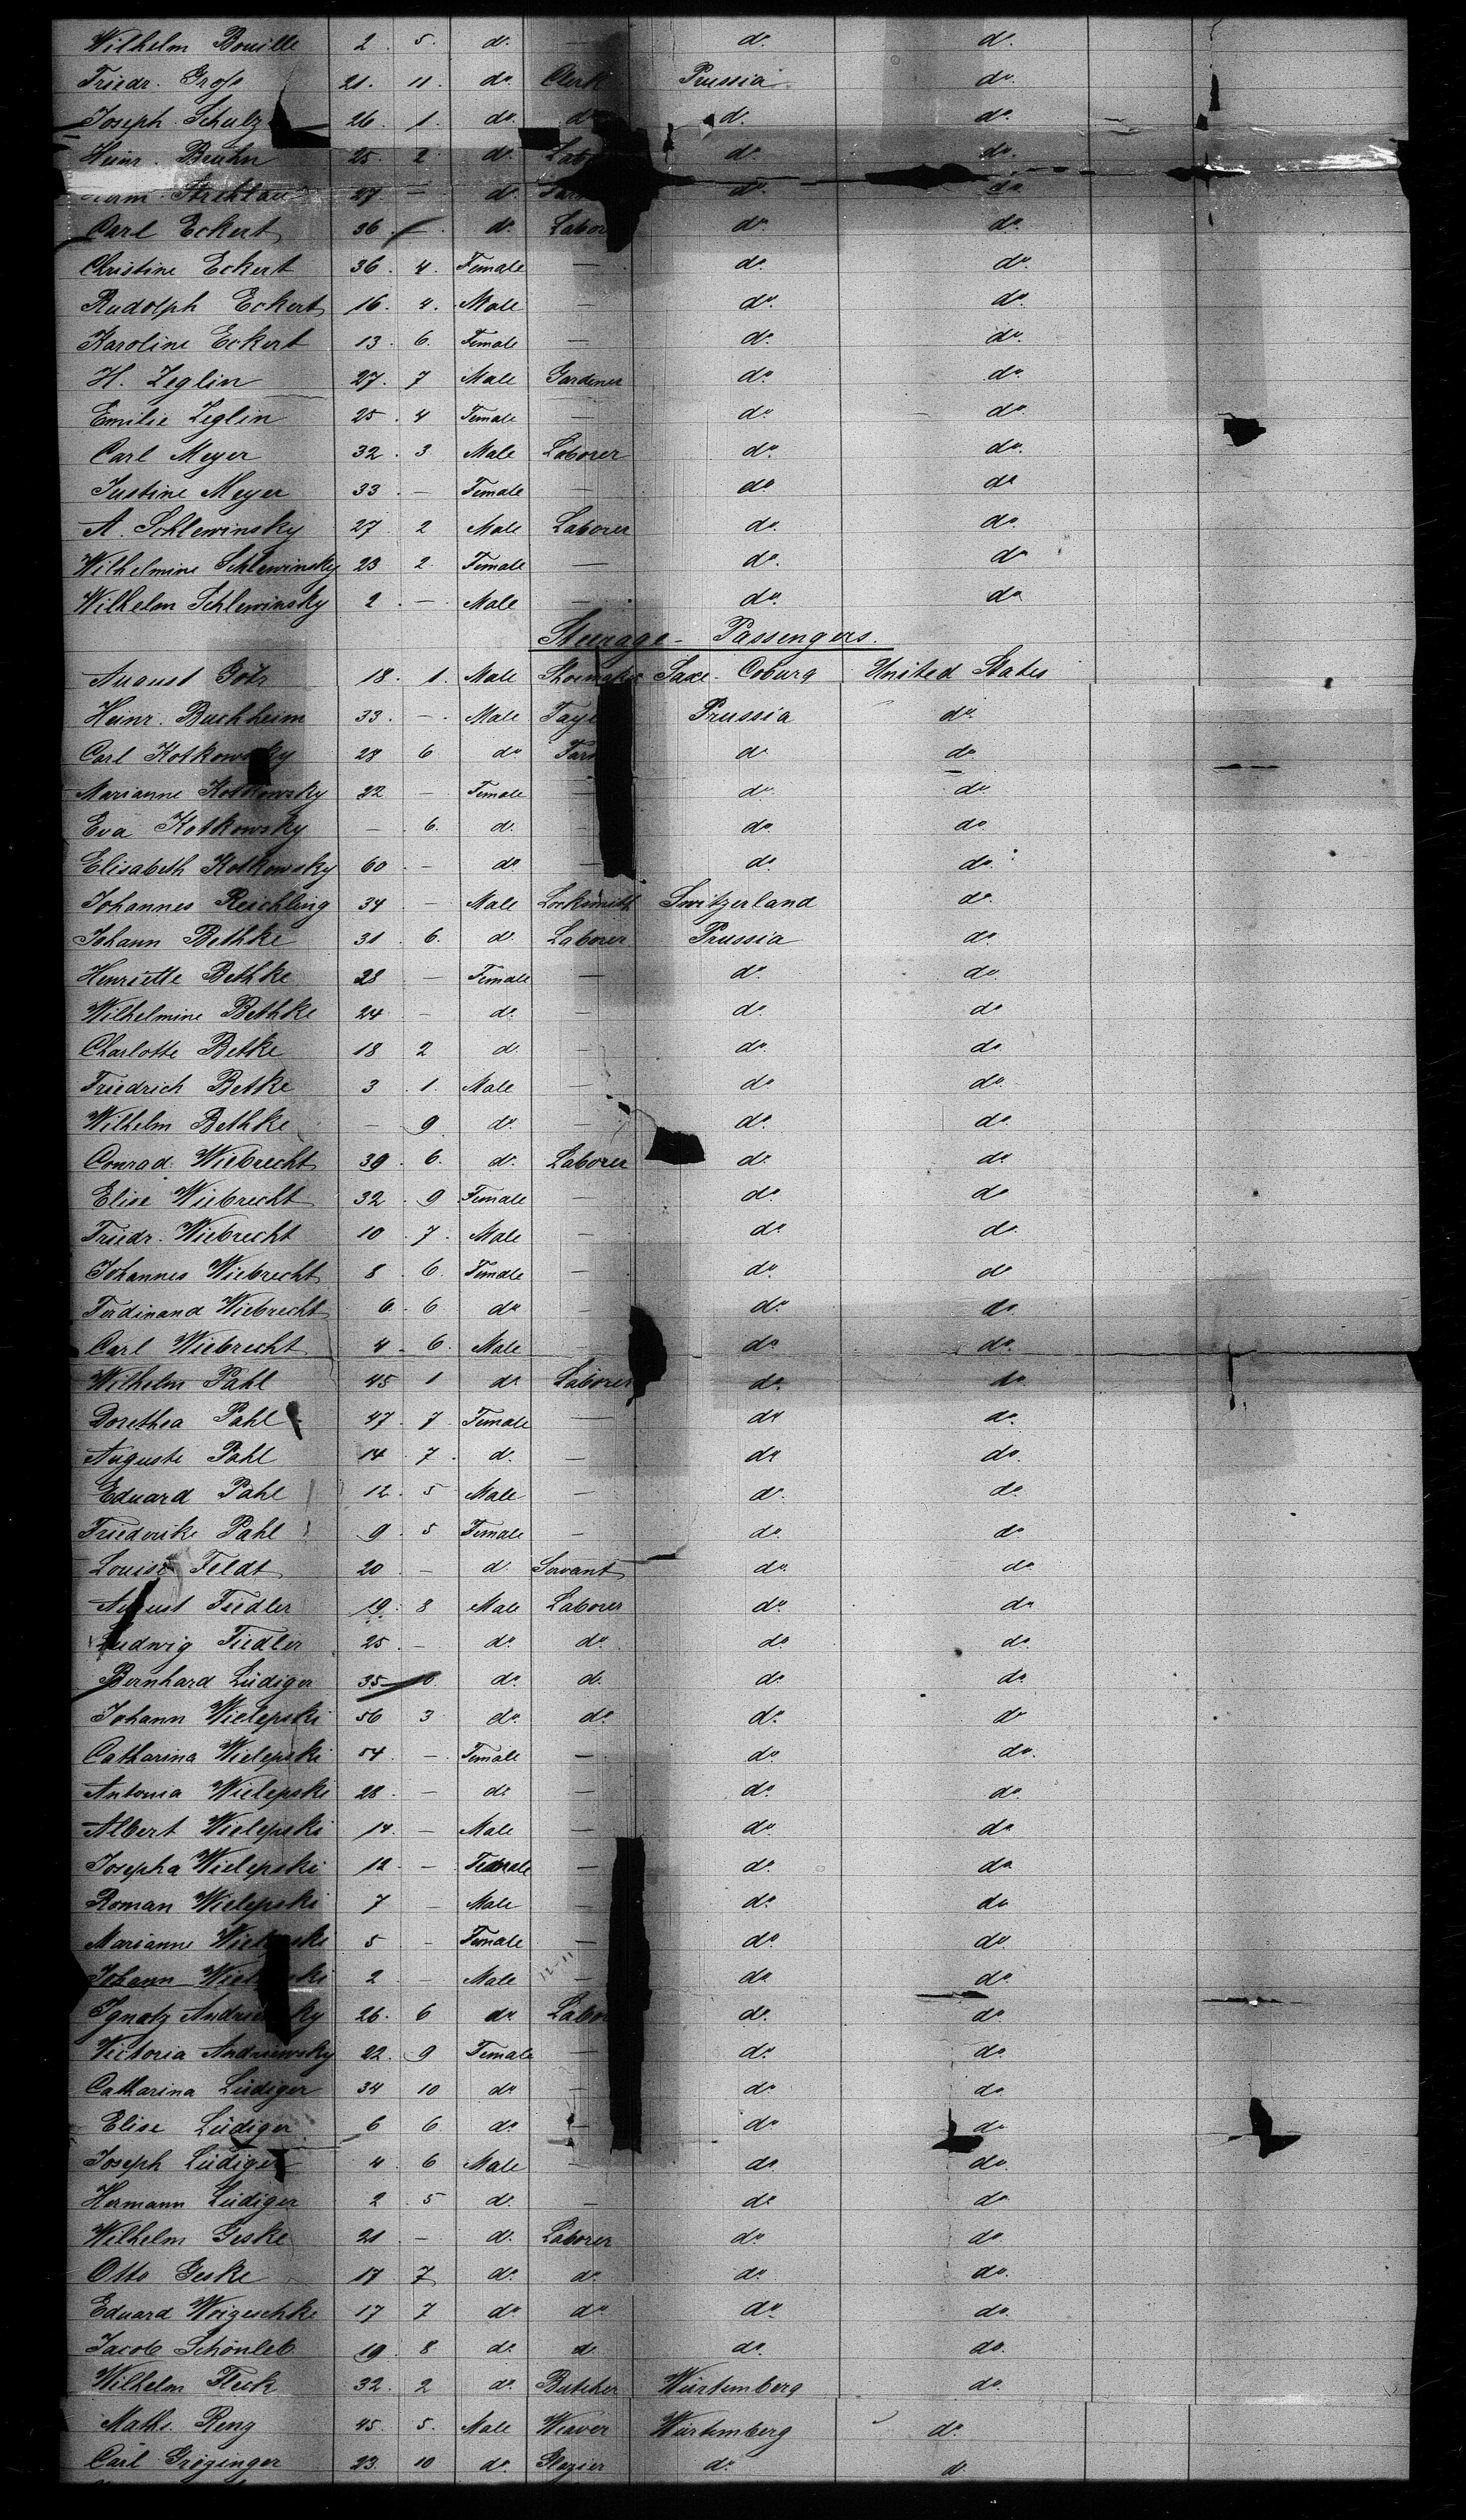 Wilhelm Bouille 2. 5. do. — do. do.
Friedr. Groß 21. 11. do. Clerk Prussia do.
Joseph Schulz 26. 1. do. do. do. do.
Heinr. Bruhn 25. 2. do. Lab do. do.
27. — do. Far do. do.
Carl Eckert 36. — do. Labor do. do.
Christine Eckert 36. 4. Female — do. do.
Rudolph Eckert 16. 4. Male — do. do.
Karoline Eckert 13. 6. Female — do. do.
H. Zeglin 27. 7 Male Gardener do. do.
Emilie Zeglin 25. 4 Female — do. do.
Carl Meyer 32. 3 Male Laborer do. do.
Justine Meyer 33. — Female — do. do.
A. Schlewinsky 27. 2 Male Laborer do. do.
Wilhelmine Schlewinsky 23 2. Female — do. do
Wilhelm Schlewinsky 2. — Male — do. do
Steerage - Passengers.
August Götz 18. 1. Male Shoemaker Saxe-Coburg United States
Heinr. Buchheim 33. — Male Tayl Prussia do.
Carl Kotkowsky 28 6 do Far do do.
Marianne Kotkowsky 22 — Female — do. do.
Eva Kotkowsky — 6. do. — do. do.
Elisabeth Kotkowsky 60. — do. — do. do.
Johannes Reichling 34 — Male Locksmith Switzerland do.
Johann Bethke 31. 6. do. Laborer Prussia do.
Henriette Bethke 28 — Female — do. do.
Wilhelmine Bethke 24 — do. — do. do
Charlotte Betke 18 2 do. — do. do.
Friedrich Betke 3. 1. Male — do. do.
Wilhelm Bethke — 9 do. — do. do.
Conrad Wiebrecht 39. 6. do. Laborer do. do.
Elise Wiebrecht 32. 9 Female — do. do
Friedr. Wiebrecht 10. 7. Male — do. do.
Johannes Wiebrecht 8. 6. Female — do. do
Ferdinand Wiebrecht 6. 6 do — do. do.
Carl Wiebrecht 4. 6. Male — do. do.
Wilhelm Pahl 45 1 do. Laborer do. do
Dorethea Pahl 47. 7. Female — do do.
Auguste Pahl 14. 7. do. — do do.
Eduard Pahl 12. 5 Male — do. do.
Friederike Pahl 9. 5 Female — do. do.
Louise Feldt 20 — do Servant do. do
August Fiedler 19. 8 Male Laborer do. do
Ludwig Fiedler 25. — do. do. do. do.
Bernhard Lüdiger 35 10. do. do. do. do.
Johann Wielepski 56 3 do. do. do. do
Catharina Wielepski 54. — Female — do. do.
Antonia Wielepski 28. — do. — do. do.
Albert Wielepski 14. — Male — do. do
Josepha Wielepski 12. — Female — do. do
Roman Wielepski 7 — Male — do. do
Marianne Wielepski 5. — Female — do. do.
Johann Wielepski 2. — Male — do. do.
Ignatz Andriewsky 26. 6 do. Labo do. do
Victoria Andriewsky 22. 9 Female — do. do.
Catharina Lüdiger 34 10 do. — do. do.
Elise Lüdiger 6 6. do. — do. do
Joseph Lüdiger 4. 6 Male — do. do.
Hermann Lüdiger 2. 5 do. — do. do
Wilhelm Geske 21. — do. Laborer do. do.
Otto Geske 17. 7 do. do. do. do.
Eduard Woizeschke 17 7 do. do. do. do.
Jacob Schönleb 19. 8 do. do do. do.
Wilhelm Fleck 32. 2 do. Butcher Würtemberg do.
Maths. Reng 45. 5. Male Weaver Würtemberg do.
Carl Grözinger 23. 10 do. Glazier do. do.